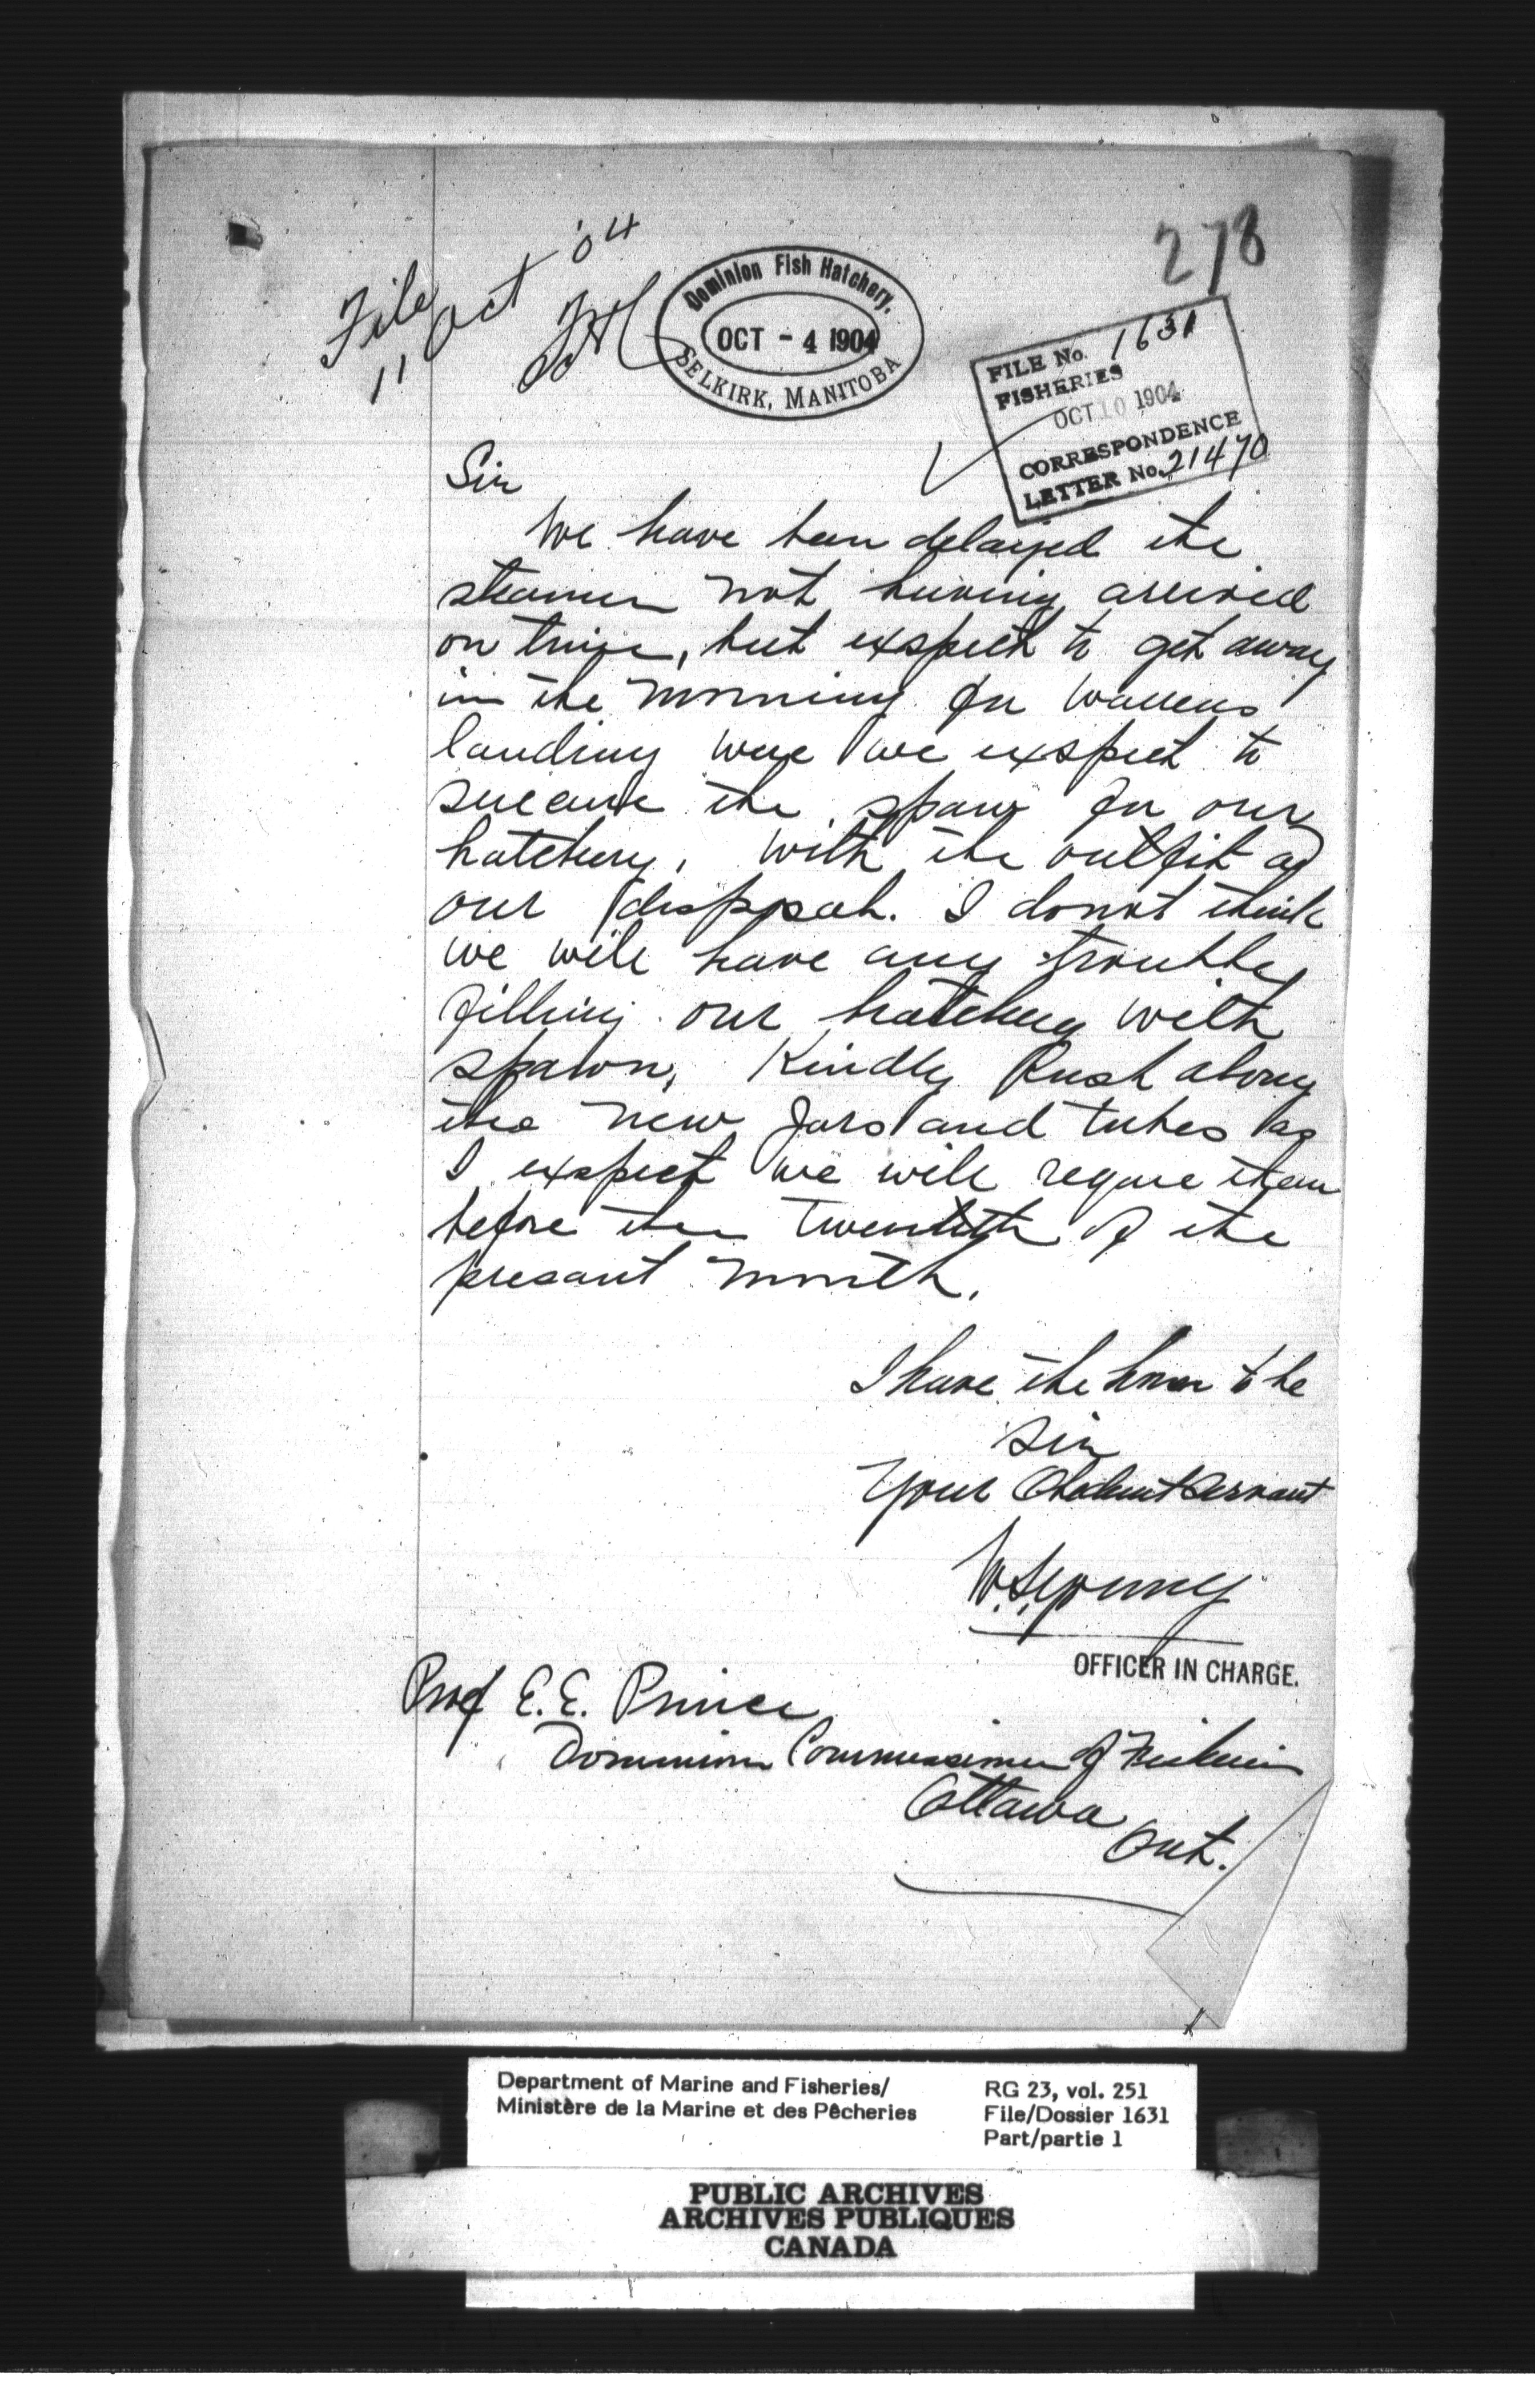 278
File
11 Oct '04
Dominion Fish Hatchery.
OCT - 4 1904
SELKIRK, MANITOBA
FILE No. 1631
FISHERIES
OCT 10 1904
CORRESPONDENCE
LETTER No. 21470
Sir
We have been delayed the
steamer not having arrived
on time, but exspect to get away
in the morning for Warrens
landing were we exspect to
succure the spawn for our
hatchery, with the outfit at
our disposal. I donot think
we will have any trouble
filling our hatchery with
spawn, Kindly Rush along
the new Jars and tubes as
I expect we will requre them
before the twentith of the
presant month.
I have the honor to be
Sir
Your Obedient Servant
W.S. Young
OFFICER IN CHARGE.
Prof E.E. Prince
Dominion Commissioner of Fisheries
Ottawa
Ont.
Department of Marine and Fisheries/
Ministère de la Marine et des Pêcheries
RG 23, vol. 251
File/Dossier 1631
Part/partie 1
PUBLIC ARCHIVES
ARCHIVES PUBLIQUES
CANADA